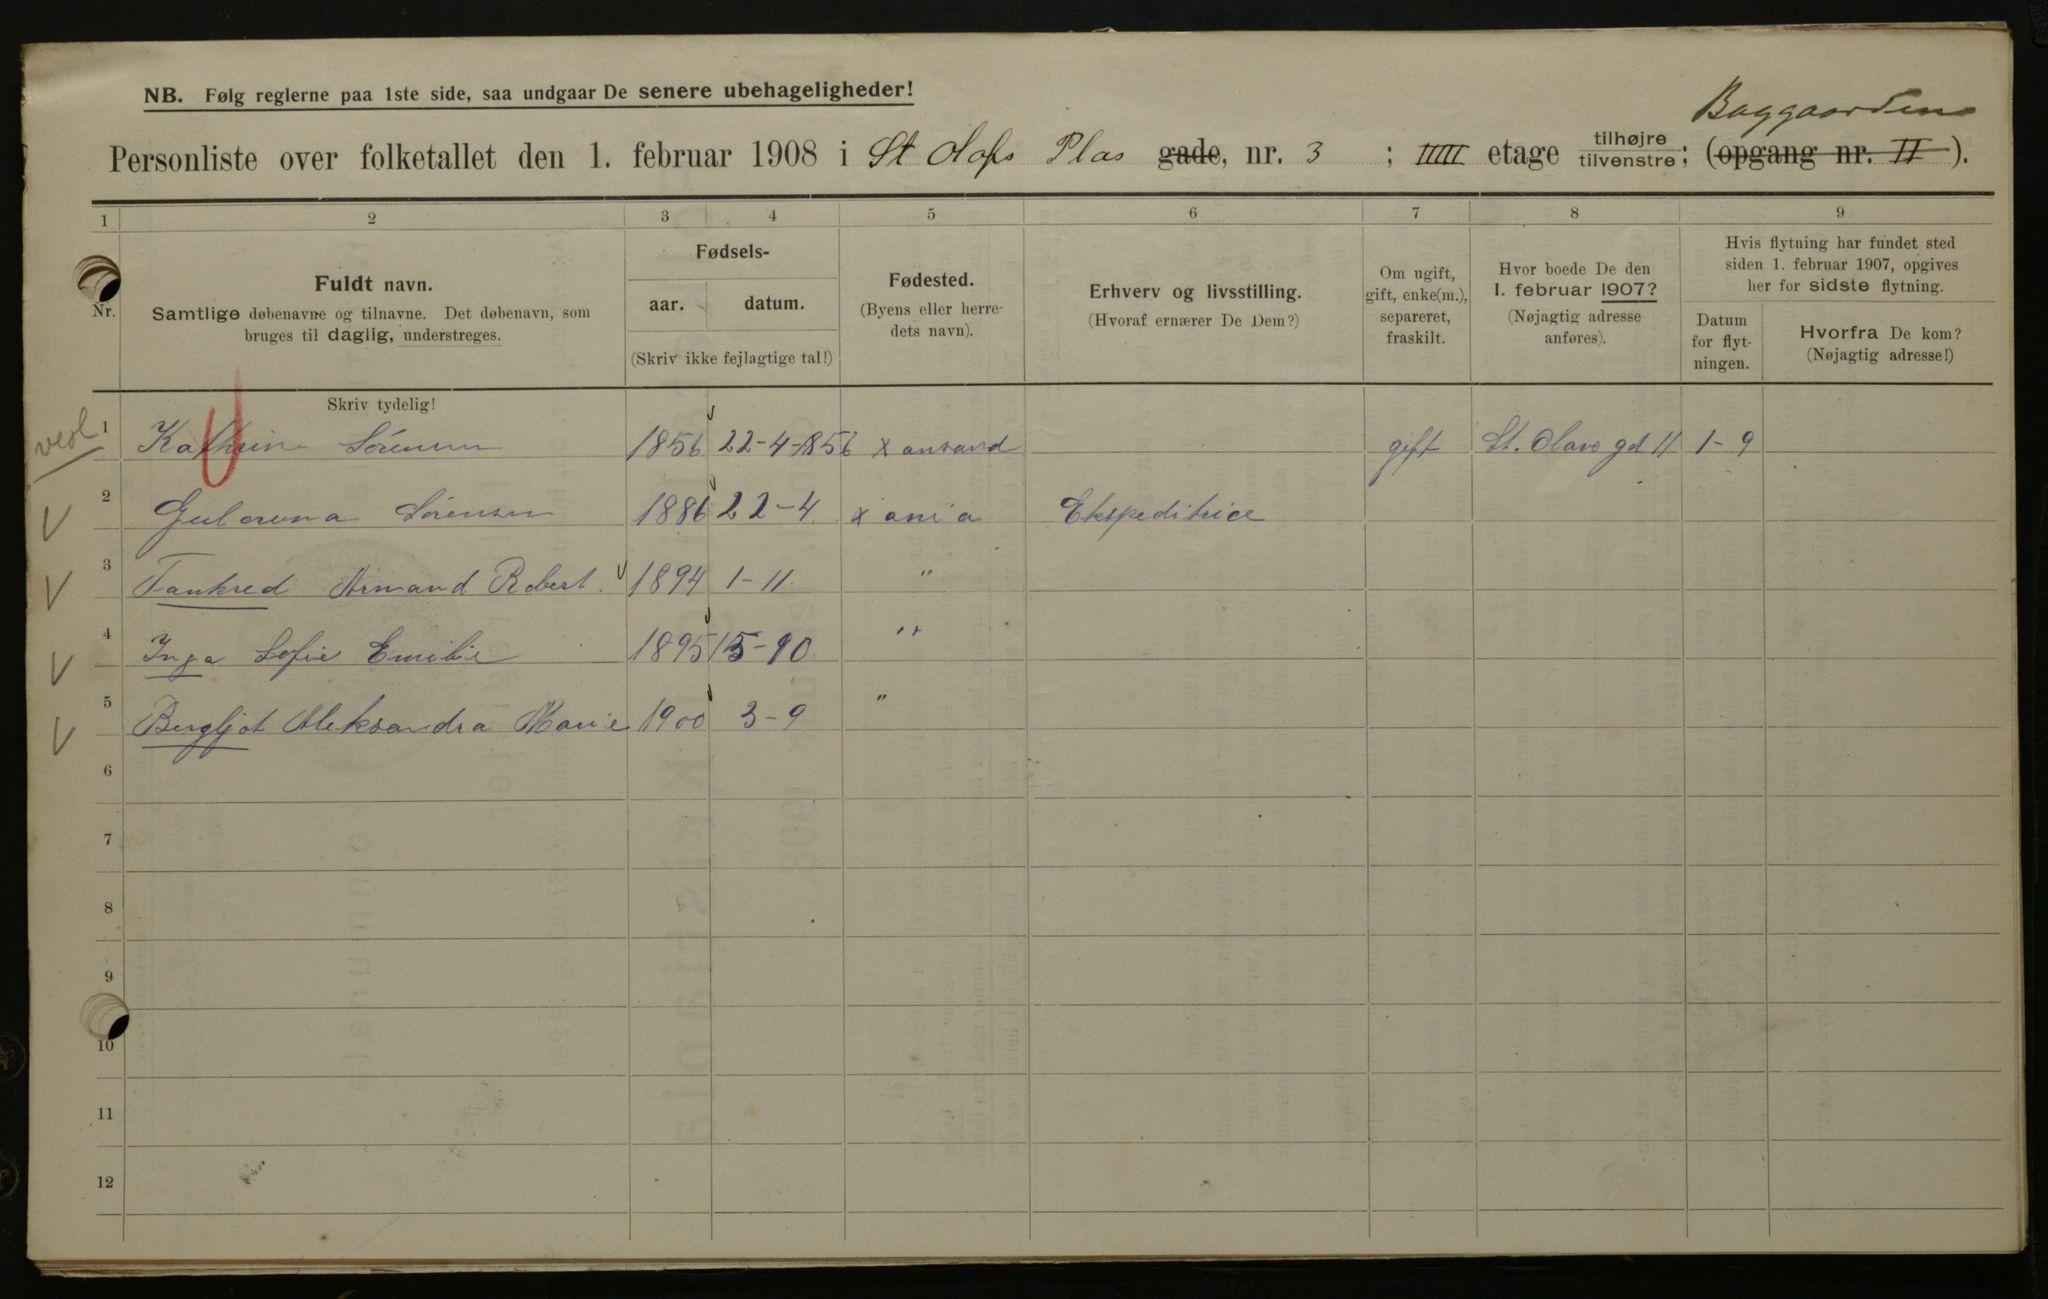 NB. Følg reglerne paa 1ste side, saa undgaar De senere ubehageligheder!
Baggaarden
Personliste over folketallet den 1. februar 1908 i St Olafs Plas gade, nr. 3 ; IIIII etage tilhøjre tilvenstre; (opgang nr. II ).
1 2 3 4 5 6 7 8 9
Nr.
Fuldt navn.
Samtlige døbenavne og tilnavne. Det døbenavn, som
bruges til daglig, understreges.
Skriv tydelig!
Fødsels-
aar. datum.
(Skriv ikke fejlagtige tal!)
Fødested.
(Byens eller herre-
dets navn).
Erhverv og livsstilling.
(Hvoraf ernærer De Dem?)
Om ugift,
gift, enke(m.),
separeret,
fraskilt.
Hvor boede De den
1. februar 1907?
(Nøjagtig adresse
anføres).
Hvis flytning har fundet sted
siden 1. februar 1907, opgives
her for sidste flytning.
Datum
for flyt-
ningen.
Hvorfra De kom?
(Nøjagtig adresse!)
1 Kathrine Sørensen 1856 22-4-1856 Xansand gift St. Olavs gd 11 1-9
2 Sørensen 1886 22-4 Xania Ekspeditrice
3 Tankred Armand Robert. 1894 1-11. "
4 Inga Sofie Emilie 1895 15-10 "
5 Bergljot Aleksandra Marie 1900 3-9 "
6
7
8
9
10
11
12